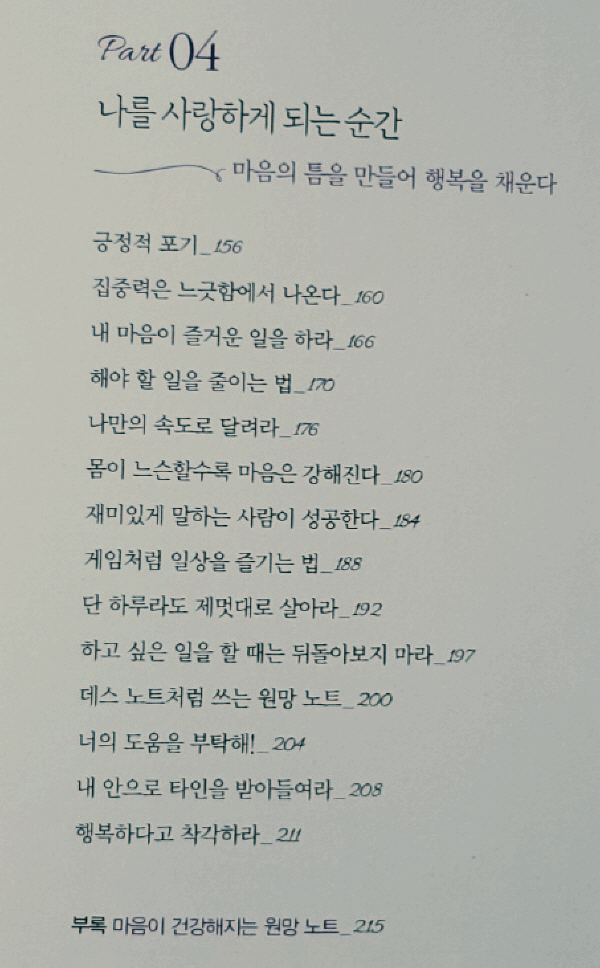 Part 04
나를 사랑하게 되는 순간
마음의 틈을 만들어 행복을 채운다
긍정적 포기_156
집중력은 느긋함에서 나온다_160
내 마음이 즐거운 일을 하라_166
해야 할 일을 줄이는 법_170
나만의 속도로 달려라_176
몸이 느슨할수록 마음은 강해진다_180
재미있게 말하는 사람이 성공한다_184
게임처럼 일상을 즐기는 법_188
단 하루라도 제멋대로 살아라_192
하고 싶은 일을 할 때는 뒤돌아보지 마라_197
데스 노트처럼 쓰는 원망 노트_200
너의 도움을 부탁해!_204
내 안으로 타인을 받아들여라_208
행복하다고 착각하라_211
부록 마음이 건강해지는 원망 노트_215